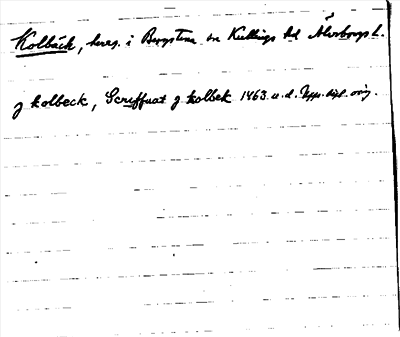 Kolbäck, herg. i Bergstena sn Kullings hd Älvsborgs l.
j kolbeck, Scriffuat j kolbek 1463 u.d. Upps. dipl. orig.